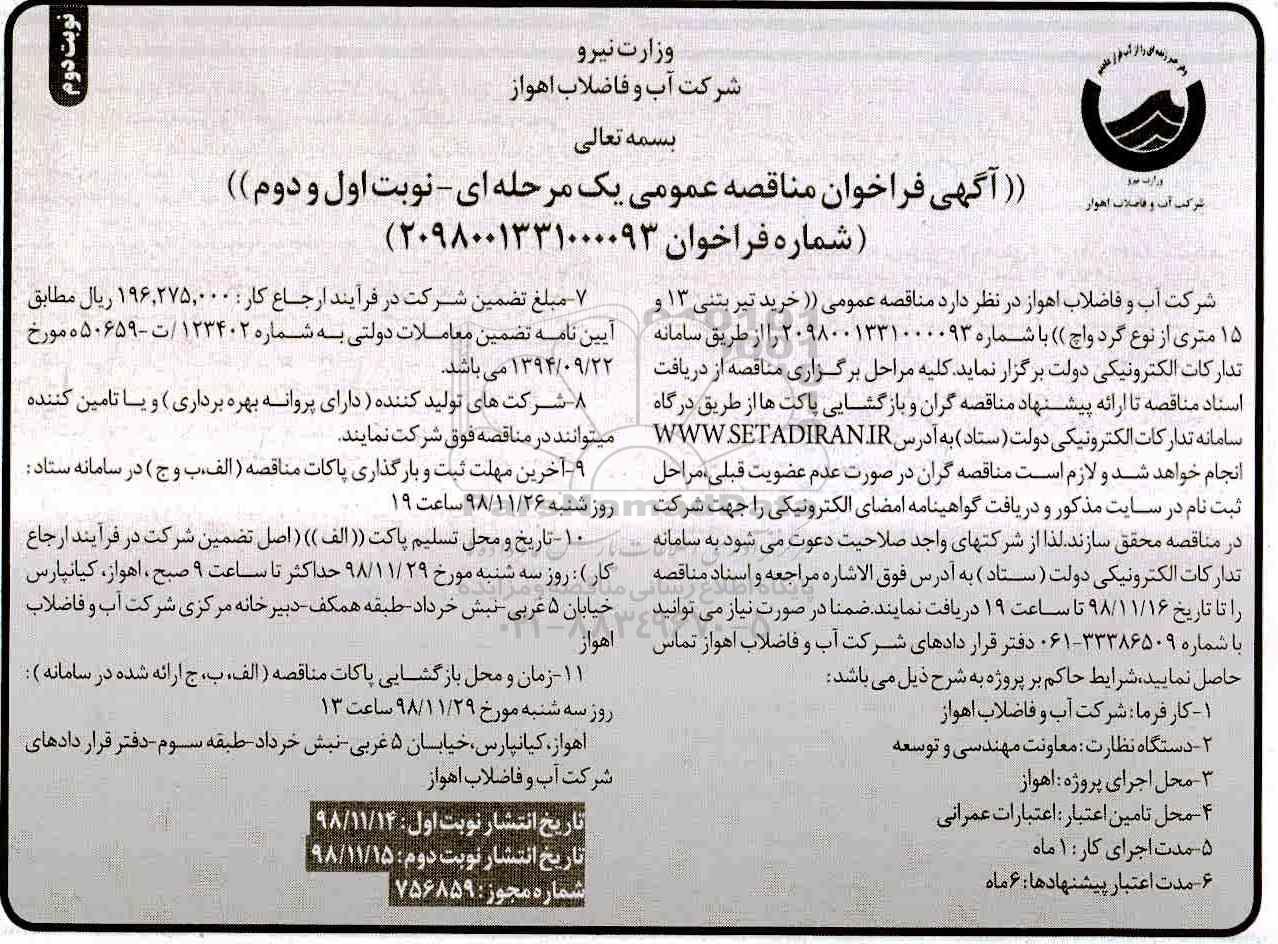 نوبت دوم
وزارت نیرو
شرکت آب و فاضلاب اهواز
بسمه تعالی
(( آگهی فراخوان مناقصه عمومی یک مرحله ای - نوبت اول و دوم ))
(شماره فراخوان ۲۰۹۸۰۰۱۳۳۱۰۰۰۰۹۳)
وزارت نیرو
شرکت آب و فاضلاب اهواز
شرکت آب و فاضلاب اهواز در نظر دارد مناقصه عمومی (( خرید تیر بتنی ۱۳ و
۱۵ متری از نوع گرد واچ )) با شماره ۲۰۹۸۰۰۱۳۳۱۰۰۰۰۹۳ را از طریق سامانه
تدارکات الکترونیکی دولت برگزار نماید.کلیه مراحل برگزاری مناقصه از دریافت
اسناد مناقصه تا ارائه پیشنهاد مناقصه گران و بازگشایی پاکت ها از طریق درگاه
سامانه تدارکات الکترونیکی دولت (ستاد) به آدرس WWW.SETADIRAN.IR
انجام خواهد شد و لازم است مناقصه گران در صورت عدم عضویت قبلی،مراحل
ثبت نام در سایت مذکور و دریافت گواهینامه امضای الکترونیکی را جهت شرکت
در مناقصه محقق سازند.لذا از شرکتهای واجد صلاحیت دعوت می شود به سامانه
تدارکات الکترونیکی دولت ( ستاد ) به آدرس فوق الاشاره مراجعه و اسناد مناقصه
را تا تاریخ ۹۸/۱۱/۱۶ تا ساعت ۱۹ دریافت نمایند.ضمنا در صورت نیاز می توانید
با شماره ۳۳۳۸۶۵۰۹-۰۶۱ دفتر قرار دادهای شرکت آب و فاضلاب اهواز تماس
حاصل نمایید،شرایط حاکم بر پروژه به شرح ذیل می باشد:
۱-کار فرما: شرکت آب و فاضلاب اهواز
۲-دستگاه نظارت: معاونت مهندسی و توسعه
۳-محل اجرای پروژه: اهواز
۴-محل تامین اعتبار: اعتبارات عمرانی
۵-مدت اجرای کار: ۱ ماه
۶-مدت اعتبار پیشنهادها: ۶ ماه
۷-مبلغ تضمین شرکت در فرآیند ارجاع کار: ۱۹۶,۲۷۵,۰۰۰ ریال مطابق
آیین نامه تضمین معاملات دولتی به شماره ۱۲۳۴۰۲ /ت -۵۰۶۵۹ ه مورخ
۱۳۹۴/۰۹/۲۲ می باشد.
۸-شرکت های تولید کننده ( دارای پروانه بهره برداری ) و یا تامین کننده
میتوانند در مناقصه فوق شرکت نمایند.
۹-آخرین مهلت ثبت و بارگذاری پاکات مناقصه ( الف،ب و ج ) در سامانه ستاد :
روز شنبه ۹۸/۱۱/۲۶ ساعت ۱۹
۱۰-تاریخ و محل تسلیم پاکت (( الف )) ( اصل تضمین شرکت در فرآیند ارجاع
کار ): روز سه شنبه مورخ ۹۸/۱۱/۲۹ حداکثر تا ساعت ۹ صبح ، اهواز، کیانپارس
خیابان ۵ غربی-نبش خرداد-طبقه همکف-دبیرخانه مرکزی شرکت آب و فاضلاب
اهواز
۱۱-زمان و محل بازگشایی پاکات مناقصه ( الف، ب، ج ارائه شده در سامانه ) :
روز سه شنبه مورخ ۹۸/۱۱/۲۹ ساعت ۱۳
اهواز،کیانپارس،خیابان ۵ غربی-نبش خرداد-طبقه سوم-دفتر قرار دادهای
شرکت آب و فاضلاب اهواز
تاریخ انتشار نوبت اول: ۹۸/۱۱/۱۴
تاریخ انتشار نوبت دوم: ۹۸/۱۱/۱۵
شماره مجوز: ۷۵۶۸۵۹
پایگاه اطلاع رسانی مناقصه و مزایده
۰۲۱-۸۸۳۴۹۶۷۰-۵